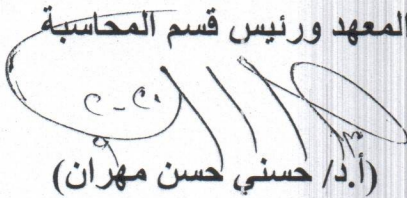 المعهد ورئيس قسم المحاسبة
(أ.د/ حسني حسن مهران)